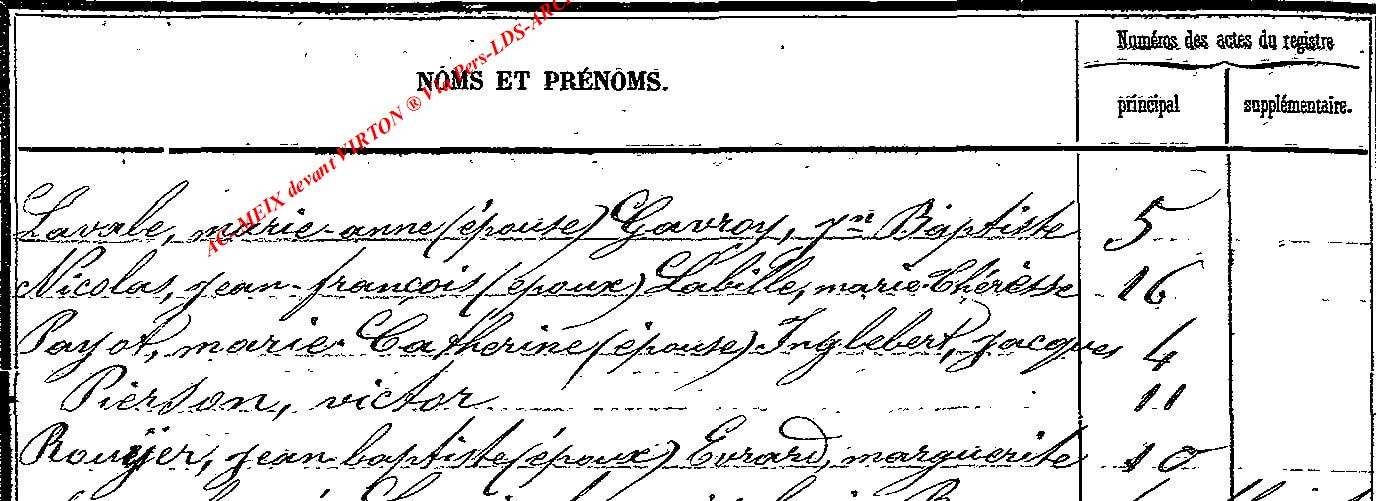 Numéros des actes du registre
NOMS ET PRÉNOMS.
principal
supplémentaire.
AC-MEIX devant VIRTON ® Via Pers-LDS-ARC
Lavale, marie-anne (épouse) Gavroy, Jn Baptiste 5
Nicolas, jean-françois (époux) Labille, marie-thérèsse 16
Payot, marie-Catherine (épouse) Inglebert, jacques 4
Pierson, victor 11
Rouyer, jean baptiste (époux) Evrard, marguerite 10